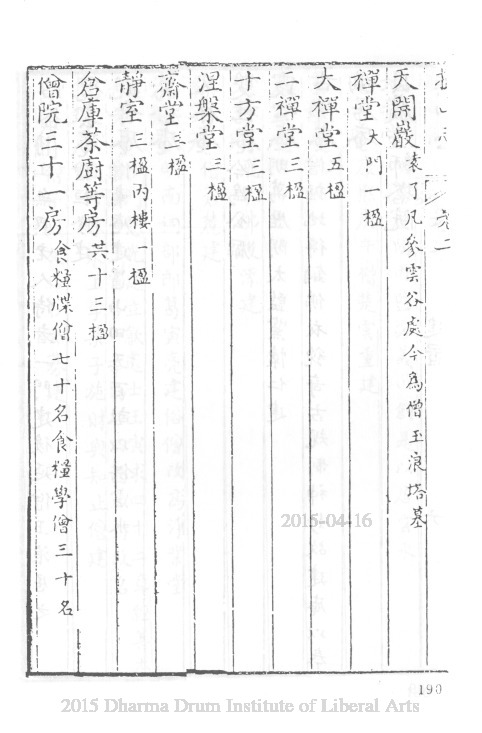 天開巖袁了凡參雲谷處今為僧玉浪塔墓
禪堂大門一楹
大禪堂五楹
二禪堂三楹
十方堂三楹
涅槃堂三楹
齋堂三楹
靜室三楹內樓一楹
倉庫茶廚等房共十三楹
僧院三十一房食糧牒僧七十名食糧學僧三十名
2015-04-16
190
2015 Dharma Drum Institute of Liberal Arts